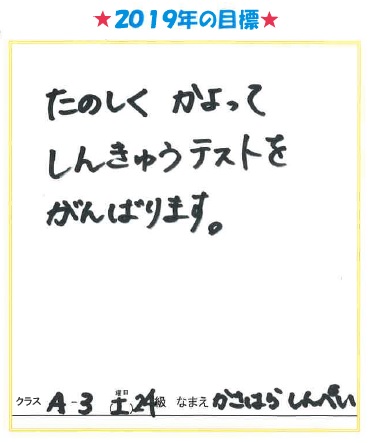 ★2019年の目標★
たのしく かよって
しんきゅうテストを
がんばります。
クラス A-3 (土曜日) 24級 なまえ かさはら しんぺい